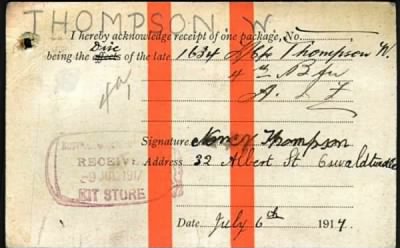 THOMPSON, W.
I hereby acknowledge receipt of one package, No.
Disc
being the effects of the late 1634 Thompson W.
4th Bn
A. I. F
Signature Nancy Thompson
RECEIVED
Address 32 Albert St Oswaldtwistle
9 JUL 1917
KIT STORE
Date July 6th 1917.